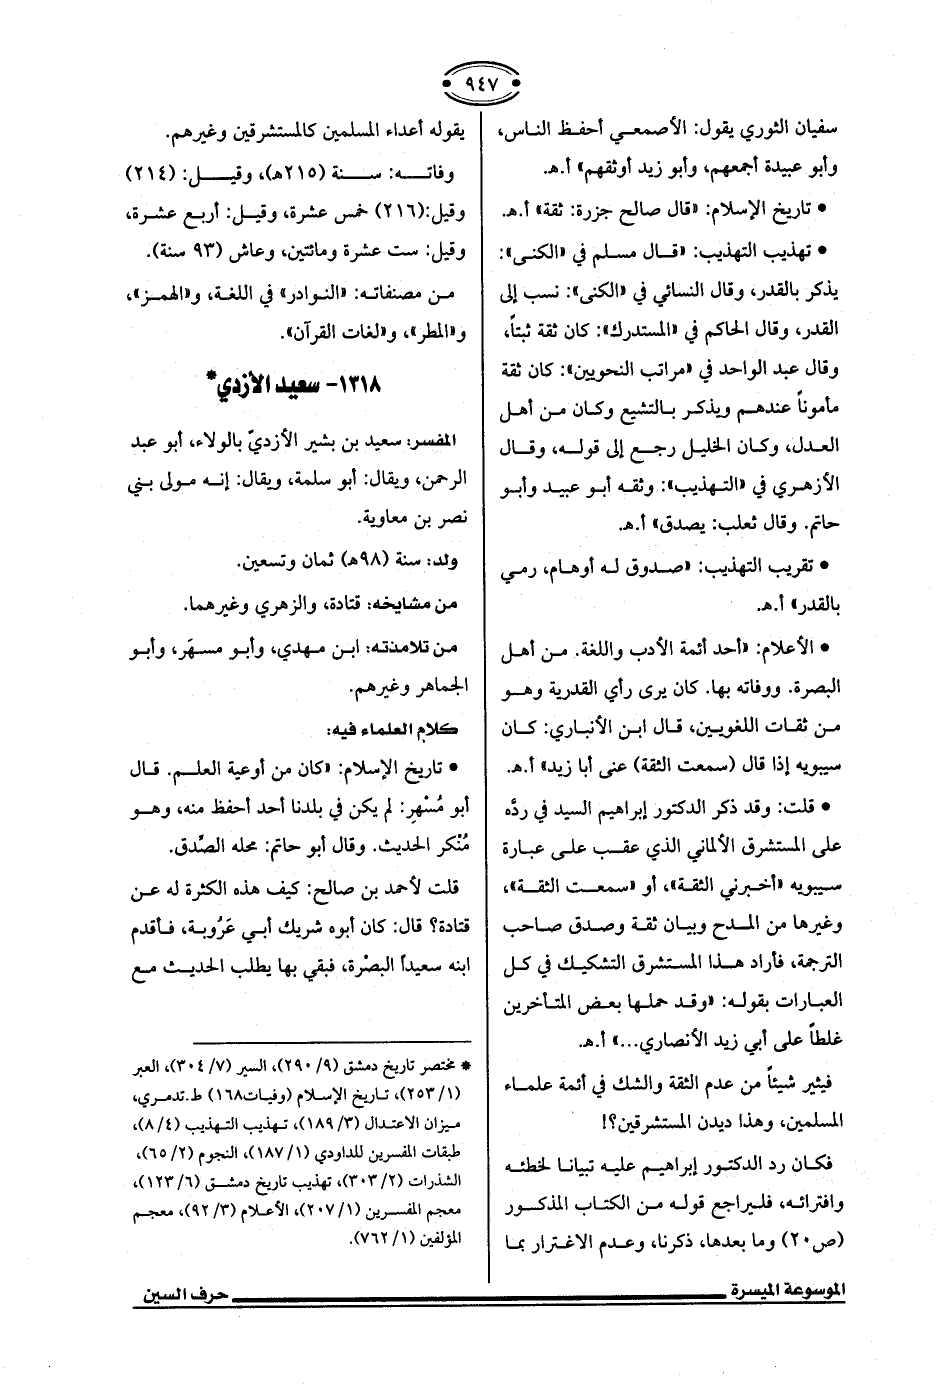 ٩٤٧
سفيان الثوري يقول: الأصمعي أحفظ الناس،
وأبو عبيدة أجمعهم، وأبو زيد أوثقهم» أ.هـ.
• تاريخ الإسلام: «قال صالح جزرة: ثقة» أ.هـ.
• تهذيب التهذيب: «قال مسلم في «الكنى»:
يذكر بالقدر، وقال النسائي في «الكنى»: نسب إلى
القدر، وقال الحاكم في «المستدرك»: كان ثقة ثبتاً،
وقال عبد الواحد في «مراتب النحويين»: كان ثقة
مأموناً عندهم ويذكر بالتشيع وكان من أهل
العدل، وكان الخليل رجع إلى قوله، وقال
الأزهري في «التهذيب»: وثقه أبو عبيد وأبو
حاتم. وقال ثعلب: يصدق» أ.هـ.
• تقريب التهذيب: «صدوق له أوهام، رمي
بالقدر» أ.هـ.
• الأعلام: «أحد أئمة الأدب واللغة. من أهل
البصرة. ووفاته بها. كان يرى رأي القدرية وهو
من ثقات اللغويين، قال ابن الأنباري: كان
سيبويه إذا قال (سمعت الثقة) عنى أبا زيد» أ.هـ.
• قلت: وقد ذكر الدكتور إبراهيم السيد في ردّه
على المستشرق الألماني الذي عقب على عبارة
سيبويه «أخبرني الثقة»، أو «سمعت الثقة»،
وغيرها من المدح وبيان ثقة وصدق صاحب
الترجمة، فأراد هذا المستشرق التشكيك في كل
العبارات بقوله: «وقد حملها بعض المتأخرين
غلطاً على أبي زيد الأنصاري...» أ.هـ.
فيثير شيئاً من عدم الثقة والشك في أئمة علماء
المسلمين، وهذا ديدن المستشرقين؟!
فكان رد الدكتور إبراهيم عليه تبيانا لخطئه
وافترائه، فليراجع قوله من الكتاب المذكور
(ص٢٠) وما بعدها، ذكرنا، وعدم الاغترار بما
يقوله أعداء المسلمين كالمستشرقين وغيرهم.
وفاته: سنة (٢١٥هـ)، وقيل: (٢١٤)
وقيل:(٢١٦) خمس عشرة، وقيل: أربع عشرة،
وقيل: ست عشرة ومائتين، وعاش (٩٣ سنة).
من مصنفاته: «النوادر» في اللغة، و«الهمز»،
و«المطر»، و«لغات القرآن».
١٣١٨- سعيد الأزدي*
المفسر: سعيد بن بشير الأزديّ بالولاء، أبو عبد
الرحمن، ويقال: أبو سلمة، ويقال: إنه مولى بني
نصر بن معاوية.
ولد: سنة (٩٨هـ) ثمان وتسعين.
من مشايخه: قتادة، والزهري وغيرهما.
من تلامذته: ابن مهدي، وأبو مسهَر، وأبو
الجماهر وغيرهم.
كلام العلماء فيه:
• تاريخ الإسلام: «كان من أوعية العلم. قال
أبو مُسْهِر: لم يكن في بلدنا أحد أحفظ منه، وهو
مُنْكر الحديث. وقال أبو حاتم: محله الصِّدق.
قلت لأحمد بن صالح: كيف هذه الكثرة له عن
قتادة؟ قال: كان أبوه شريك أبي عَرُوبة، فأقدم
ابنه سعيداً البصْرة، فبقي بها يطلب الحديث مع
* مختصر تاريخ دمشق (٩/ ٢٩٠)، السير (٧/ ٣٠٤)، العبر
(١/ ٢٥٣)، تاريخ الإسلام (وفيات١٦٨) ط.تدمري،
ميزان الاعتدال (٣/ ١٨٩)، تهذيب التهذيب (٤/ ٨)،
طبقات المفسرين للداودي (١/ ١٨٧)، النجوم (٢/ ٦٥)،
الشذرات (٢/ ٣٠٣)، تهذيب تاريخ دمشق (٦/ ١٢٣)،
معجم المفسرين (١/ ٢٠٧)، الأعلام (٣/ ٩٢)، معجم
المؤلفين (١/ ٧٦٢).
الموسوعة الميسرة حرف السين